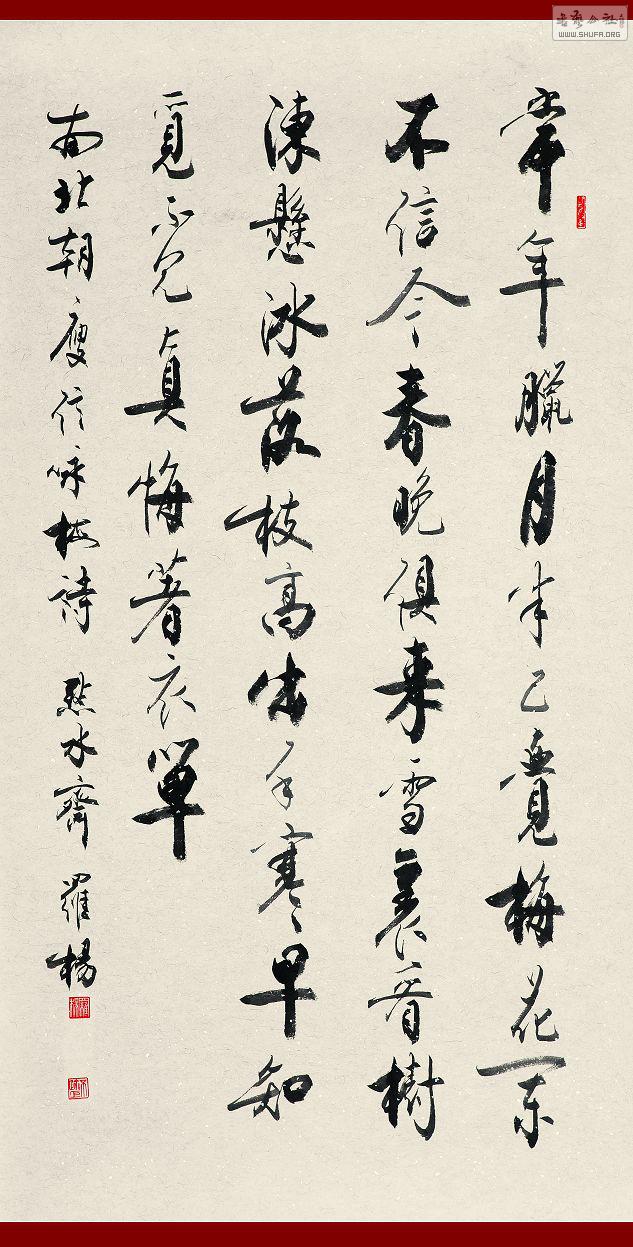 常年臘月半已覺梅花闌
不信今春晚俱來雪裏看樹
凍懸冰落枝高出手寒早知
覓不見真悔著衣單
南北朝庾信咏梅詩 點水齋 羅楊
书艺公社
WWW.SHUFA.ORG